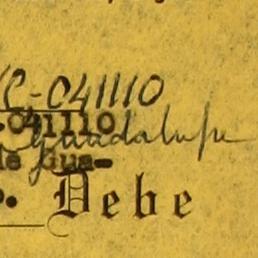 C-041110
.041110
Guadalupe
de Gua-
Debe